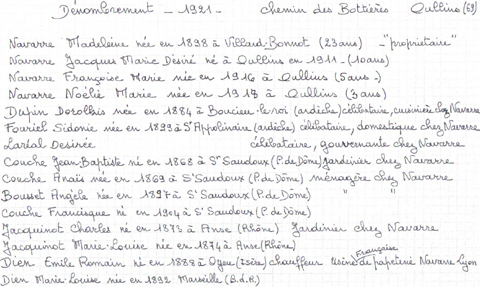 Dénombrement - 1921 - chemin des Bottières Oullins (69)
Navarre Madeleine née en 1898 à Villard-Bonnot (23 ans) - "propriétaire"
Navarre Jacques Marie Désiré né à Oullins en 1911 - (10 ans)
Navarre Françoise Marie née en 1916 à Oullins (5 ans -)
Navarre Noélie Marie née en 1918 à Oullins (3 ans)
Dupin Dorothée née en 1884 à Boucieu-le-roi (ardèche) célibataire, cuisinière chez Navarre
Fouriel Sidonie née en 1893 à St Appolinaire (ardèche) célibataire, domestique chez Navarre
Lartal Desirée célibataire, gouvernante chez Navarre
Couche Jean-Baptiste né en 1868 à St Saudoux (P. de Dôme) jardinier chez Navarre
Couche Anaïs née en 1869 à St Saudoux (P. de Dôme) ménagère chez Navarre
Bousset Angèle née en 1897 à St Saudoux (P. de Dôme) " "
Couche Francisque né en 1904 à St Saudoux (P. de Dôme)
Jacquinot Charles né en 1873 à Anse (Rhône) Jardinier chez Navarre
Jacquinot Marie-Louise née en 1874 à Anse (Rhône)
Dien Emile Romain né en 1888 à Oyeu (Isère) chauffeur Usine Française de papeterie Navarre Lyon
Dien Marie-Louise née en 1892 Marseille (B.d.R)